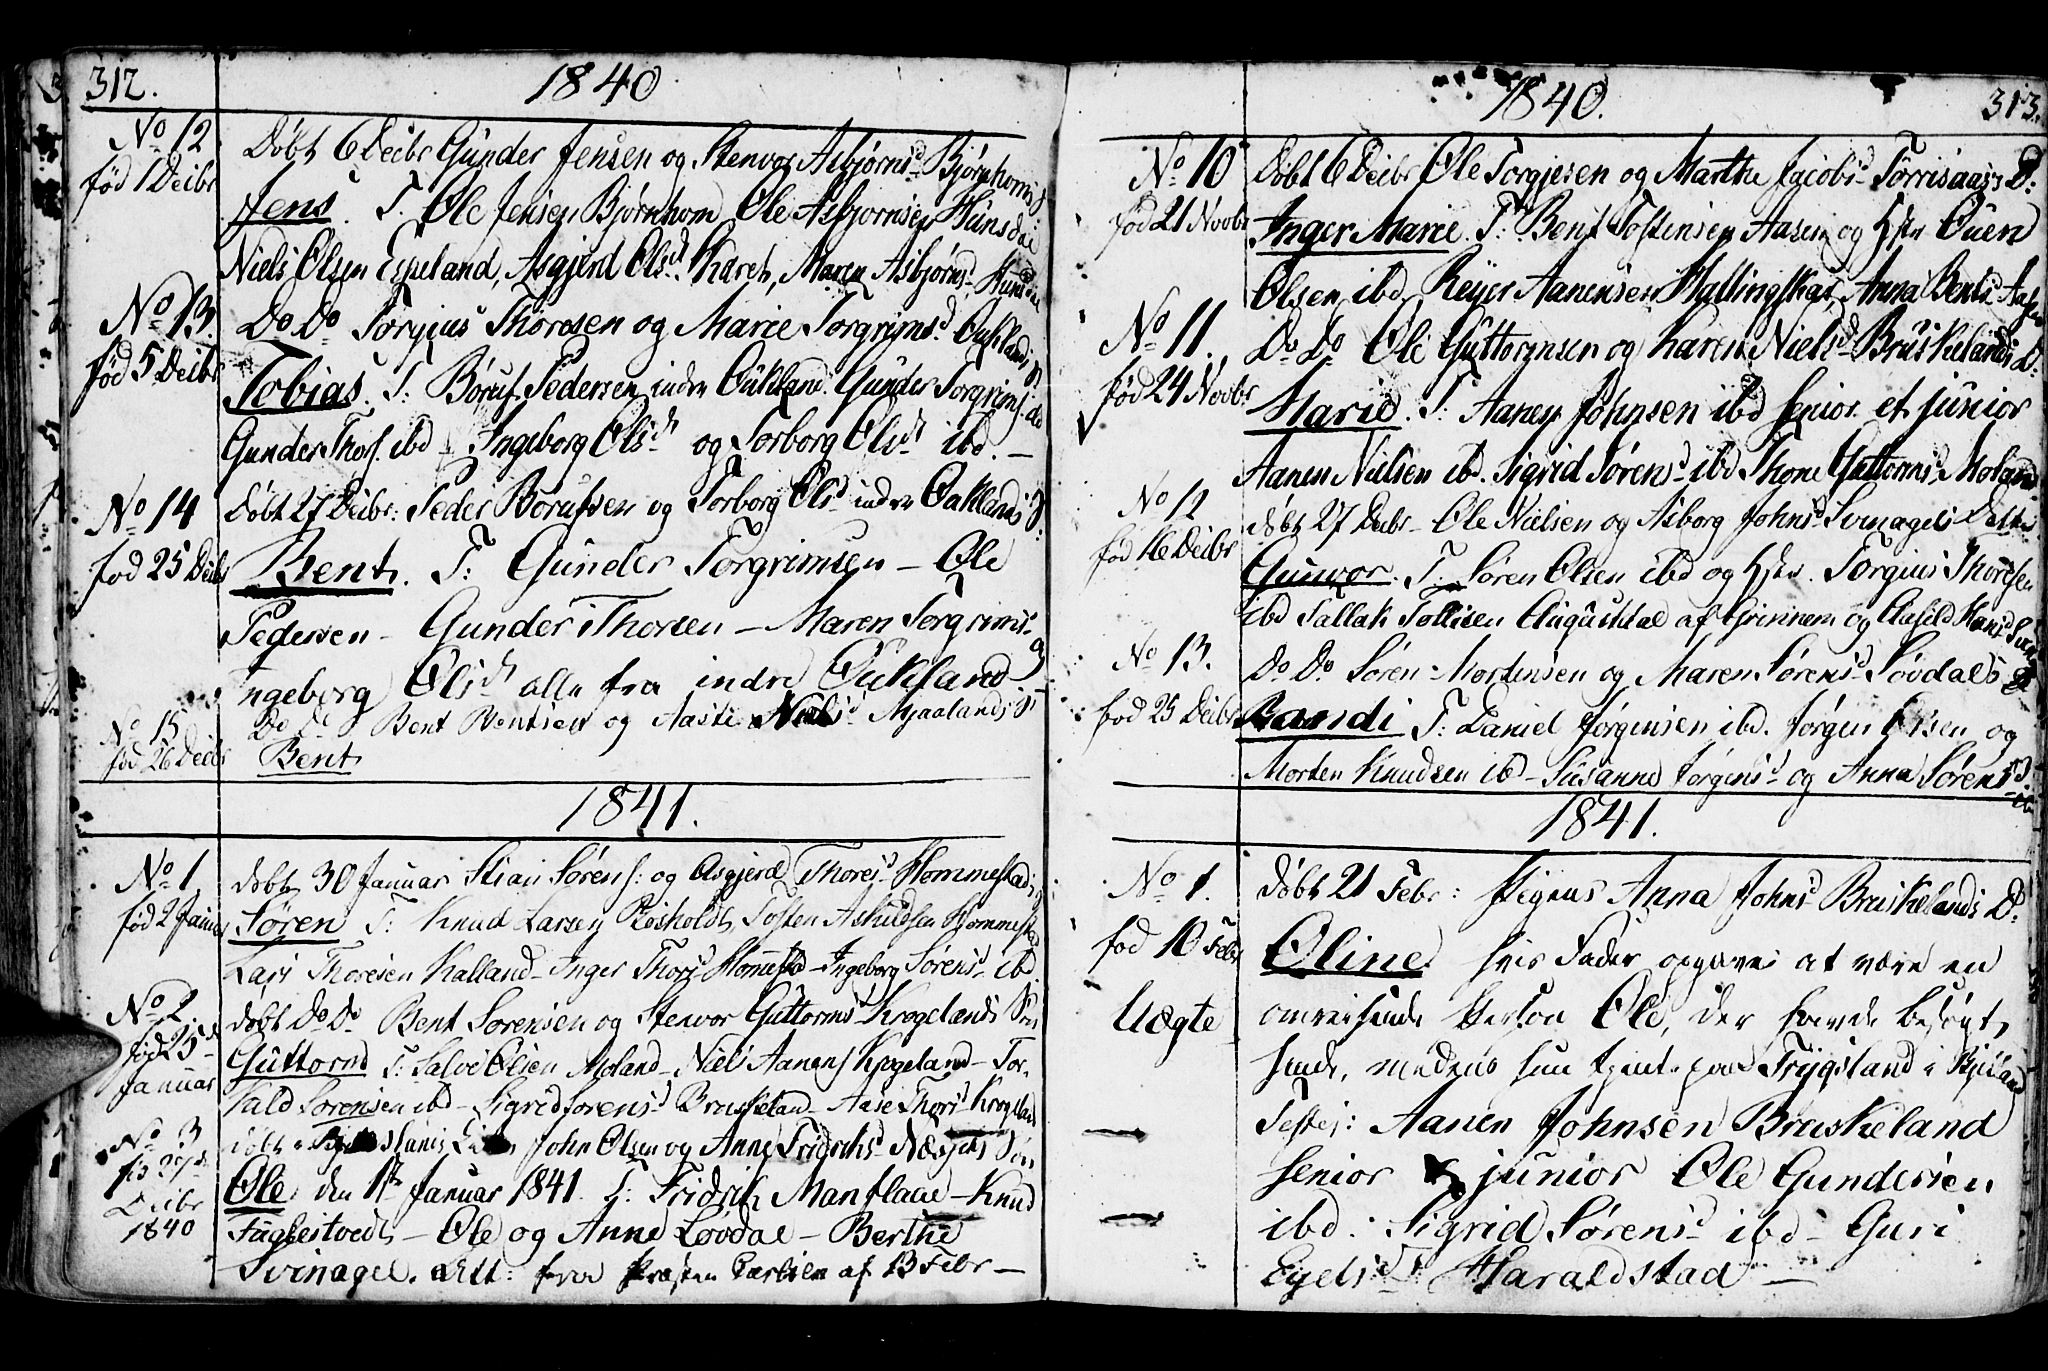 312.
1840
No 12
fød 1 Decbr
Døbt 6 Decbr Gunder Jensen og Stenvor Asbjørnsd. Bjørnhoms S:
Jens. T. Ole Jensen Bjørnhom, Ole Asbjørnsen Hunsdal
Niels Olsen Espeland, Asgjerd Olsd. ibid, Maren Asbjørnsd Hunsdal
No 13.
fød 5 Decbr
Do Do Torgius Thoresen og Marie Torgrimsd. Øuklands S:
Tobias. T: Børuf Pedersen indre Øukland. Gunder Torgrims. ibd
Gunder Thors. ibd Ingeborg Olsd og Torborg Olsd ibd. —
No 14
fød 25 Decbr
Døbt 27 Decbr: Peder Børufsen og Torborg Olsd indre Øuklands S:
Bent. T: Gunder Torgrimsen — Ole
Pedersen — Gunder Thorsen — Maren Torgrimsd
Ingeborg Olsd alle fra indre Øukland
No 15
fød 26 Decbr
Do Do Bent Bentsen og Aaste Nielsd Mjaalands S:
Bent
1841.
No 1
fød 2 Januar
døbt 30 Januar Stian Sørens: og Asgjerd Thoresd Hommestads
Søren T: Knud Larsen Røisholdt, Tosten Askildsen Hommestad
Lars Thoresen Kalland — Inger Thorsd Hommestad — Ingeborg Sørensd ibd.
No 2
fød 25d
Januar
døbt Do Do Bent Sørensen og Stenvor Guttormsd Krogelands Søn
Guttorm T: Salve Olsen Moland — Niels Aanens Krogeland — Tor-
kild Sørensen ibd — Sigrid Sørensd Bruskeland — Aase Thorsd Krogeland
No 3
Decbr
1840
døbt John Olsen og Anne Fridrichsd Søn
Ole den 1te Januar 1841. T: Fridrik Manflaae — Knud
Fuglestvedt — Ole og Anne Løvdal — Berthe
Svinagel. Att: fra Præsten Carlsen af 13 Febr —
1840.
313.
No 10
fød 21 Novbr
Døbt 6 Decbr Ole Torgjesen og Marthe Jacobsd Torrisaass D:
Inger Marie. T: Bent Tostensen Aasen og Hstr Øuen
Olsen ibd, Reyer Aanensen Hallingskar, Anna Bentsd. Aasen
No 11.
fød 24 Novbr
Do Do Ole Guttormsen og Karen Nielsd Bruskelands D:
Marie. T: Aanen Johnsen ibd senior et junior
Aanen Nielsen ibd. Sigrid Sørensd ibd Thone Guttormsd Moland.
No 12
fød 16 Decbr
døbt 27 Decbr — Ole Nielsen og Asborg Johnsd Svinagels Datter
Gunvor. T. Søren Olsen ibd og Hstr. Torgius Thoresen
ibd Tallak Tollisen Augustdal af Grinnem og Aasild Hansd
No 13.
fød 25 Decbr
Do Do Søren Mortensen og Maren Sørensd Løvdals D
Randi T: Daniel Jørgensen ibd. Jørgen Olsen og
Morten Knudsen ibd — Susanne Jørgensd og Anna Sørensd ib
1841.
No 1.
fød 10 Febr
Uægte
døbt 21 Febr: Pigens Anna Johnsd Bruskelands D:
Oline hvis Fader opgaves at være en
omreisende Person Ole, der havde besøgt
hende, medens hun tjente paa Trygsland i Bjelland
Testes: Aanen Johnsen Bruskeland
senior & junior Ole Gundersen
ibd: Sigrid Sørensd ibd — Guri
Eyelsd Haraldstad —